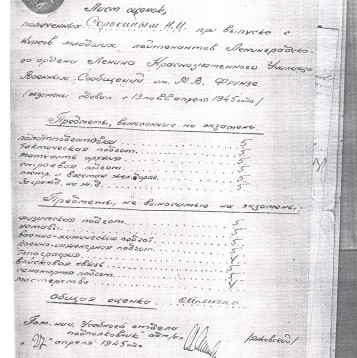 Лист оценок,
полученных Сорокиным Н.И. при выпуске с
Курсов младших лейтенантов Ленинградско-
го ордена Ленина Краснознаменного Училища
Военных Сообщений им. М.В. Фрунзе
/экзамены сдавал с 13 по 22 апреля 1945 года/
Предметы, вынесенные на экзамены:
Политподготовка 5
Тактическая подгот. 5
Матчасть оружия 5
Строевая подгот. 5
и восстан. жел.дорог. 5
Заград. на ж.д. 5
Предметы, не выносимые на экзамены:
Физическая подгот.
Уставы
Военно-химическая подгот.
Военно-инженерная подгот.
Топография
Войсковая связь
Санитарная подгот.
Общая оценка отлично
Пом. нач. Учебного отдела
подполковник
"27" апреля 1945 года